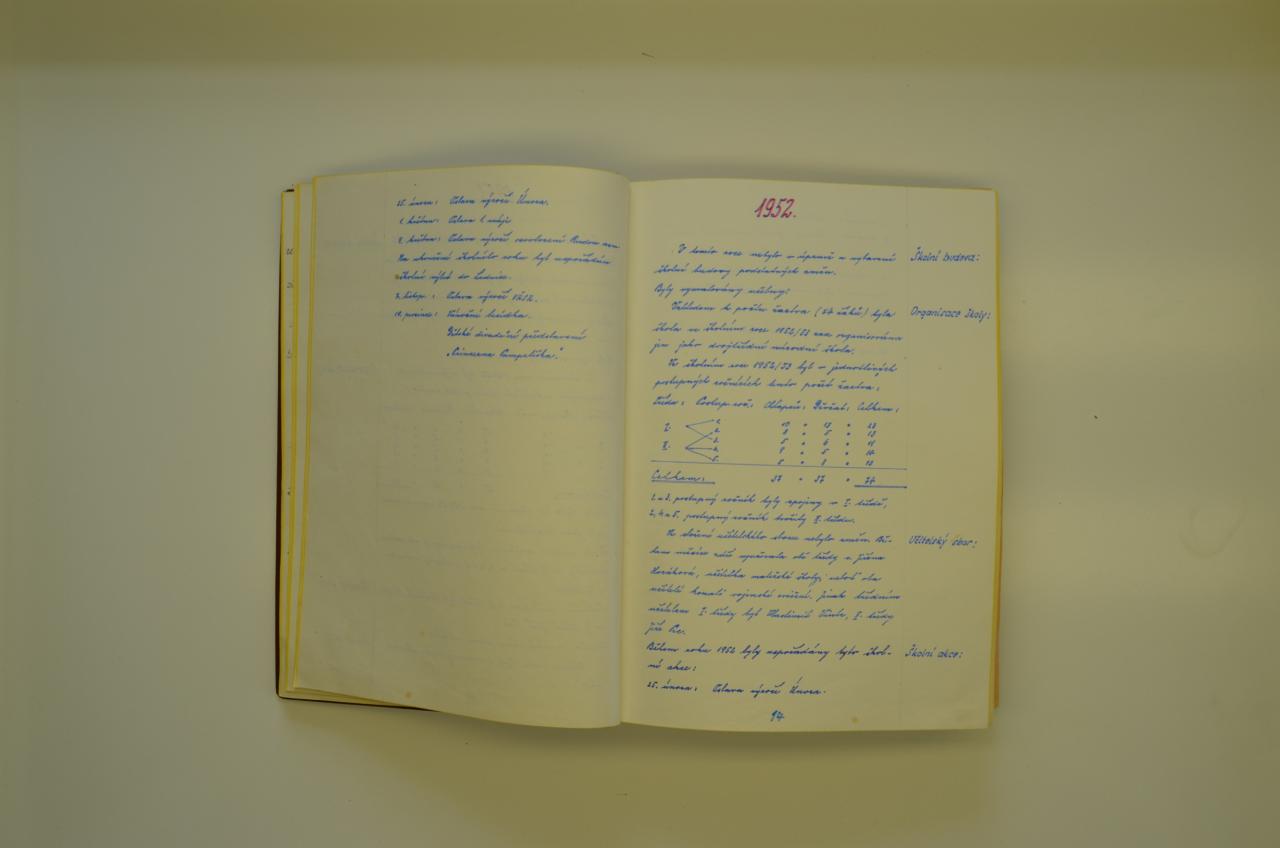 25. února: Oslava výročí Února.
1. května: Oslava 1. máje
9. května: Oslava výročí osvobození Rudou arm.
Na ukončení školního roku byl uspořádán
školní výlet do Lednice.
7. listop.: Oslava výročí VŘSR.
19. prosince: Vánoční besídka.
Dětské divadelní představení
„Princezna Pampeliška."
1952.
V tomto roce nebylo v úpravě a vybavení
školní budovy podstatných změn.
Byly vymalovány učebny.
Školní budova:
Vzhledem k počtu žactva (74 žáků) byla
škola ve školním roce 1952/53 zase organisována
jen jako dvojtřídní národní škola.
Organisace školy:
Ve školním roce 1952/53 byl v jednotlivých
postupných ročnících tento počet žactva:
Třída: Postup. roč.: Chlapců: Děvčat: Celkem:
I. 1. 10 " 13 " 23
2. 8 " 5 " 13
3. 5 " 6 " 11
II. 4. 9 " 5 " 14
5. 5 " 8 " 13
Celkem: 37 " 37 " 74
1. a 3. postupný ročník byly spojeny v I. třídě,
2., 4. a 5. postupný ročník tvořily II. třídu.
Ve složení učitelského sboru nebylo změn. Bě-
hem měsíce září vyučovala obě třídy s.
Horáková, učitelka mateřské školy, neboť oba
učitelé konali vojenské cvičení. Jinak třídním
učitelem I. třídy byl Vlastimil, II. třídy
Jiří
Učitelský sbor:
Během roku 1952 byly uspořádány tyto škol-
ní akce:
Školní akce:
25. února: Oslava výročí Února.
94